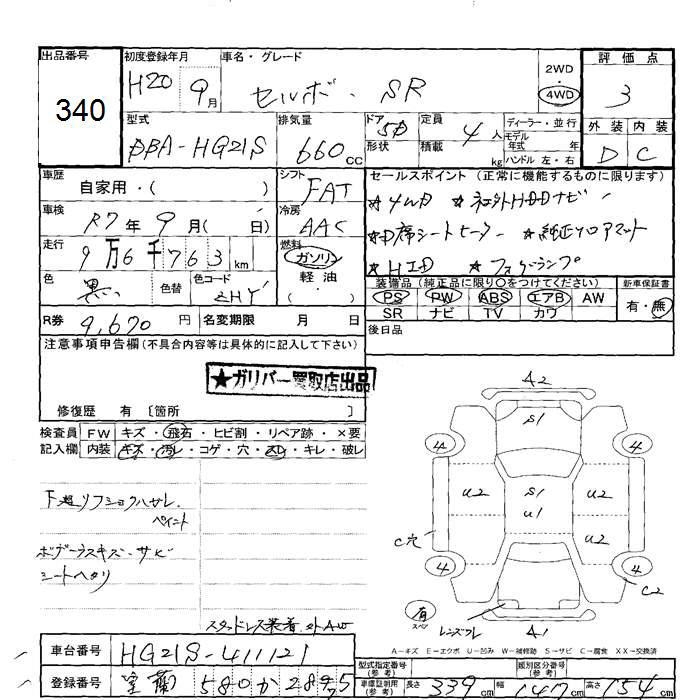 出品番号
340
初度登録年月 車名・グレード
H20 9月 セルボ・SR
2WD
・
4WD
評価点
3
外装 内装
D C
型式 排気量 ドア 定員 ディーラー・並行
DBA-HG21S 660cc 5D 4人
形状 積載 kg
モデル年式 年
ハンドル 左・右
車歴 自家用・( )
シフト FAT
車検 R7年9月( 日)
冷房 AAC
走行 9万6千763km
燃料 ガソリン
軽油
・( )
色 黒 色替 色コード ZHY
R券 9,670円 名変期限 月 日
セールスポイント(正常に機能するものに限ります)
★4WD ★社外HDDナビ
★D席シートヒーター ★純正フロアマット
★HID ★フォグランプ
装備品(純正品に限り○をつけてください) 新車保証書
PS PW ABS エアB AW 有・無
SR ナビ TV カワ
後日品
注意事項申告欄(不具合内容等は具体的に記入して下さい)
★ガリバー買取店出品
修復歴 有 〔箇所 〕
検査員 FW キズ・飛石・ヒビ割・リペア跡・×要
記入欄 内装 キズ・汚レ・コゲ・穴・スレ・キレ・破レ
ペイント
ボデーラスキズ・サビ
シートヘタリ
スタッドレス装着
A2
S1
4 4
U2 S1 U2
U1 U2
C穴
4 4
C2
有
スペア
レンズワレ A1
A-キズ E-エクボ U-凹み W-補修跡 S-サビ C-腐食 XX-交換済
車台番号 HG21S-411121
登録番号 室蘭 580か2895
型式指定番号(参考) 類別区分番号(参考)
車庫証明用(参考) 長さ 339cm 幅 147cm 高さ 154cm